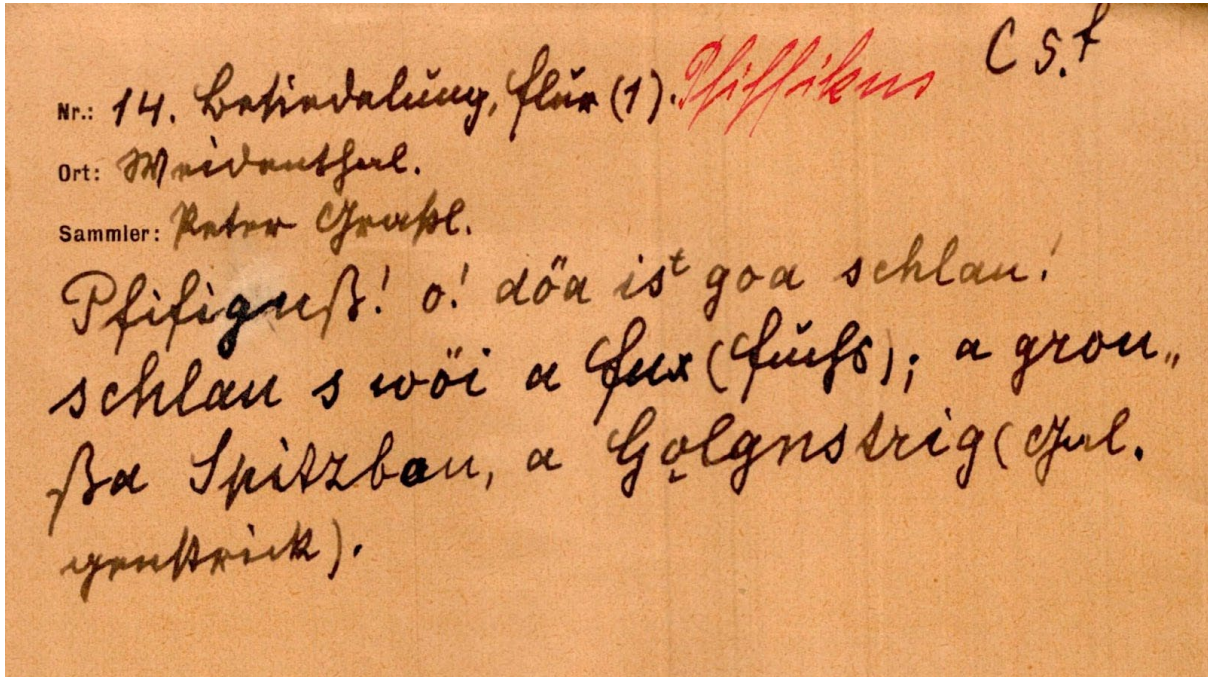 Nr.: 14. Besiedelung, Flur (1). Pfiffikus C 5. f
Ort: Weidenthal.
Sammler: Peter Graßl.
Pfifignuß! o! döa ist goa schlau!
schlau s wöi a Fux (Fuchs); a grou„
ßa Spitzbou, a Golgnstrig (Gal.
genstrick).